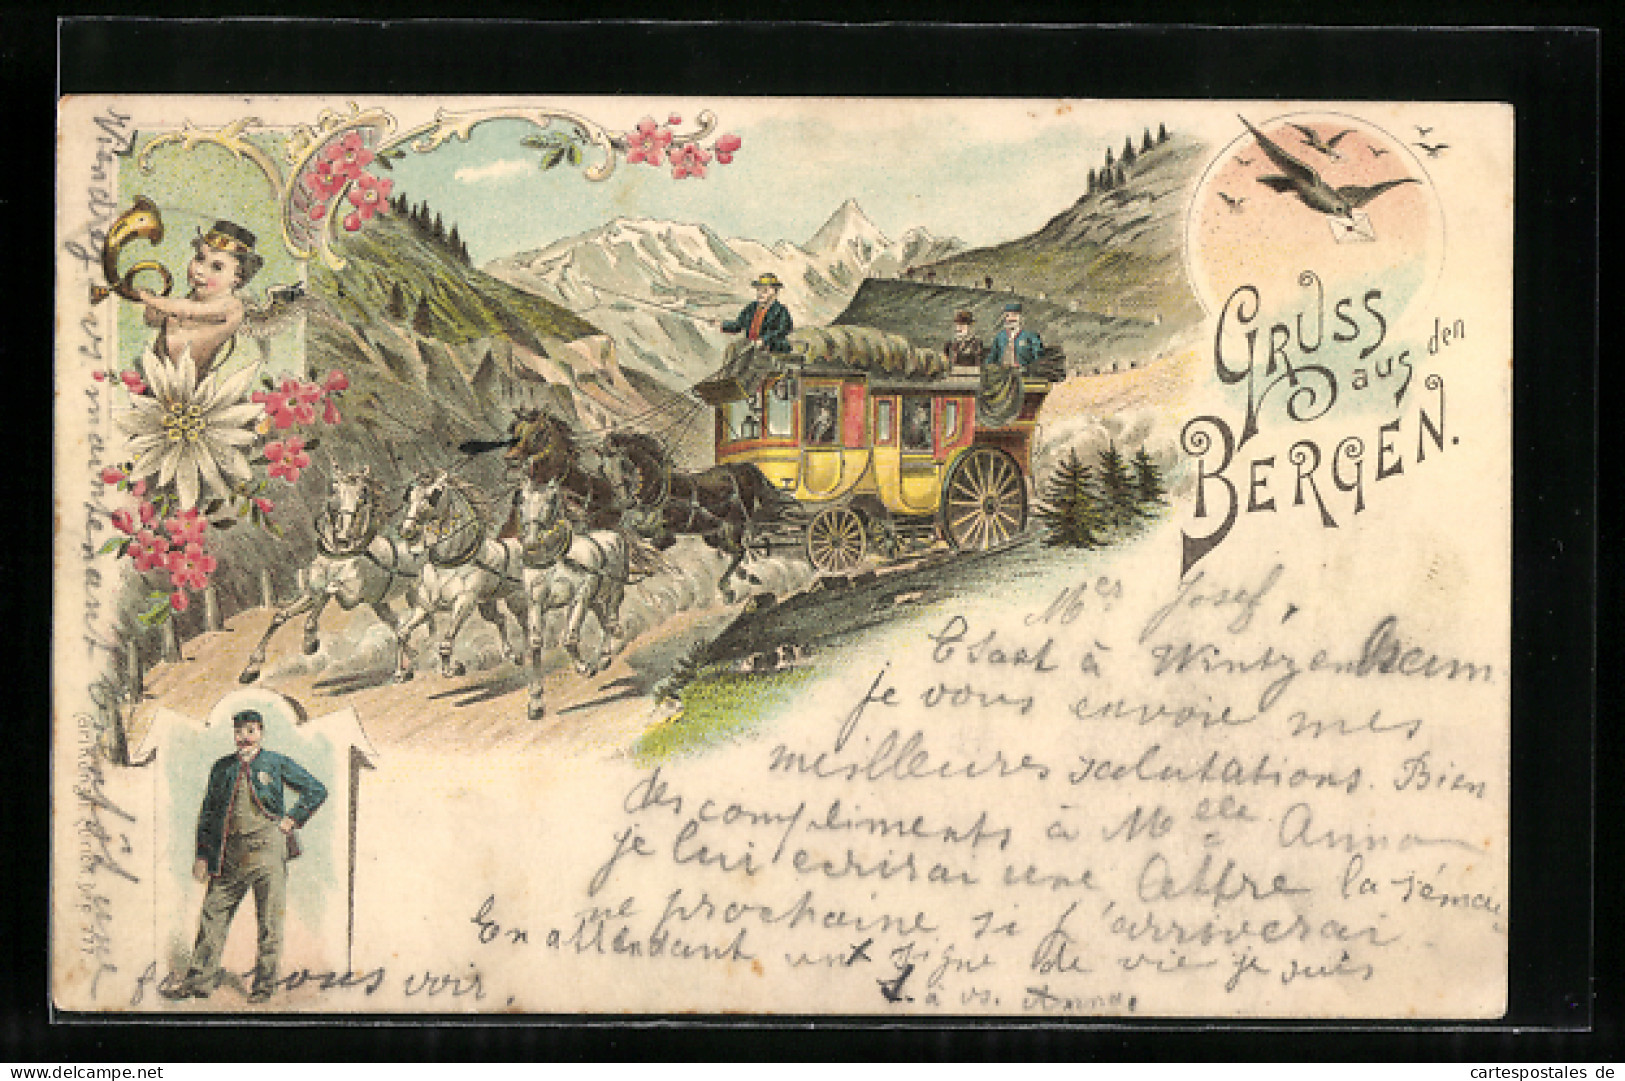 GRUSS aus den
BERGEN.
Mes Josef,
Elsast à Wintzenheim
je vous envoie mes
meilleures salutations. Bien
des compliments à Melle Anna
je lui ecrirai une lettre la séma
ne prochaine si j'arriverai
En attendant un signe de vie je suis
à vs. Anna.
maintenant
vous voir.
cartespostales de